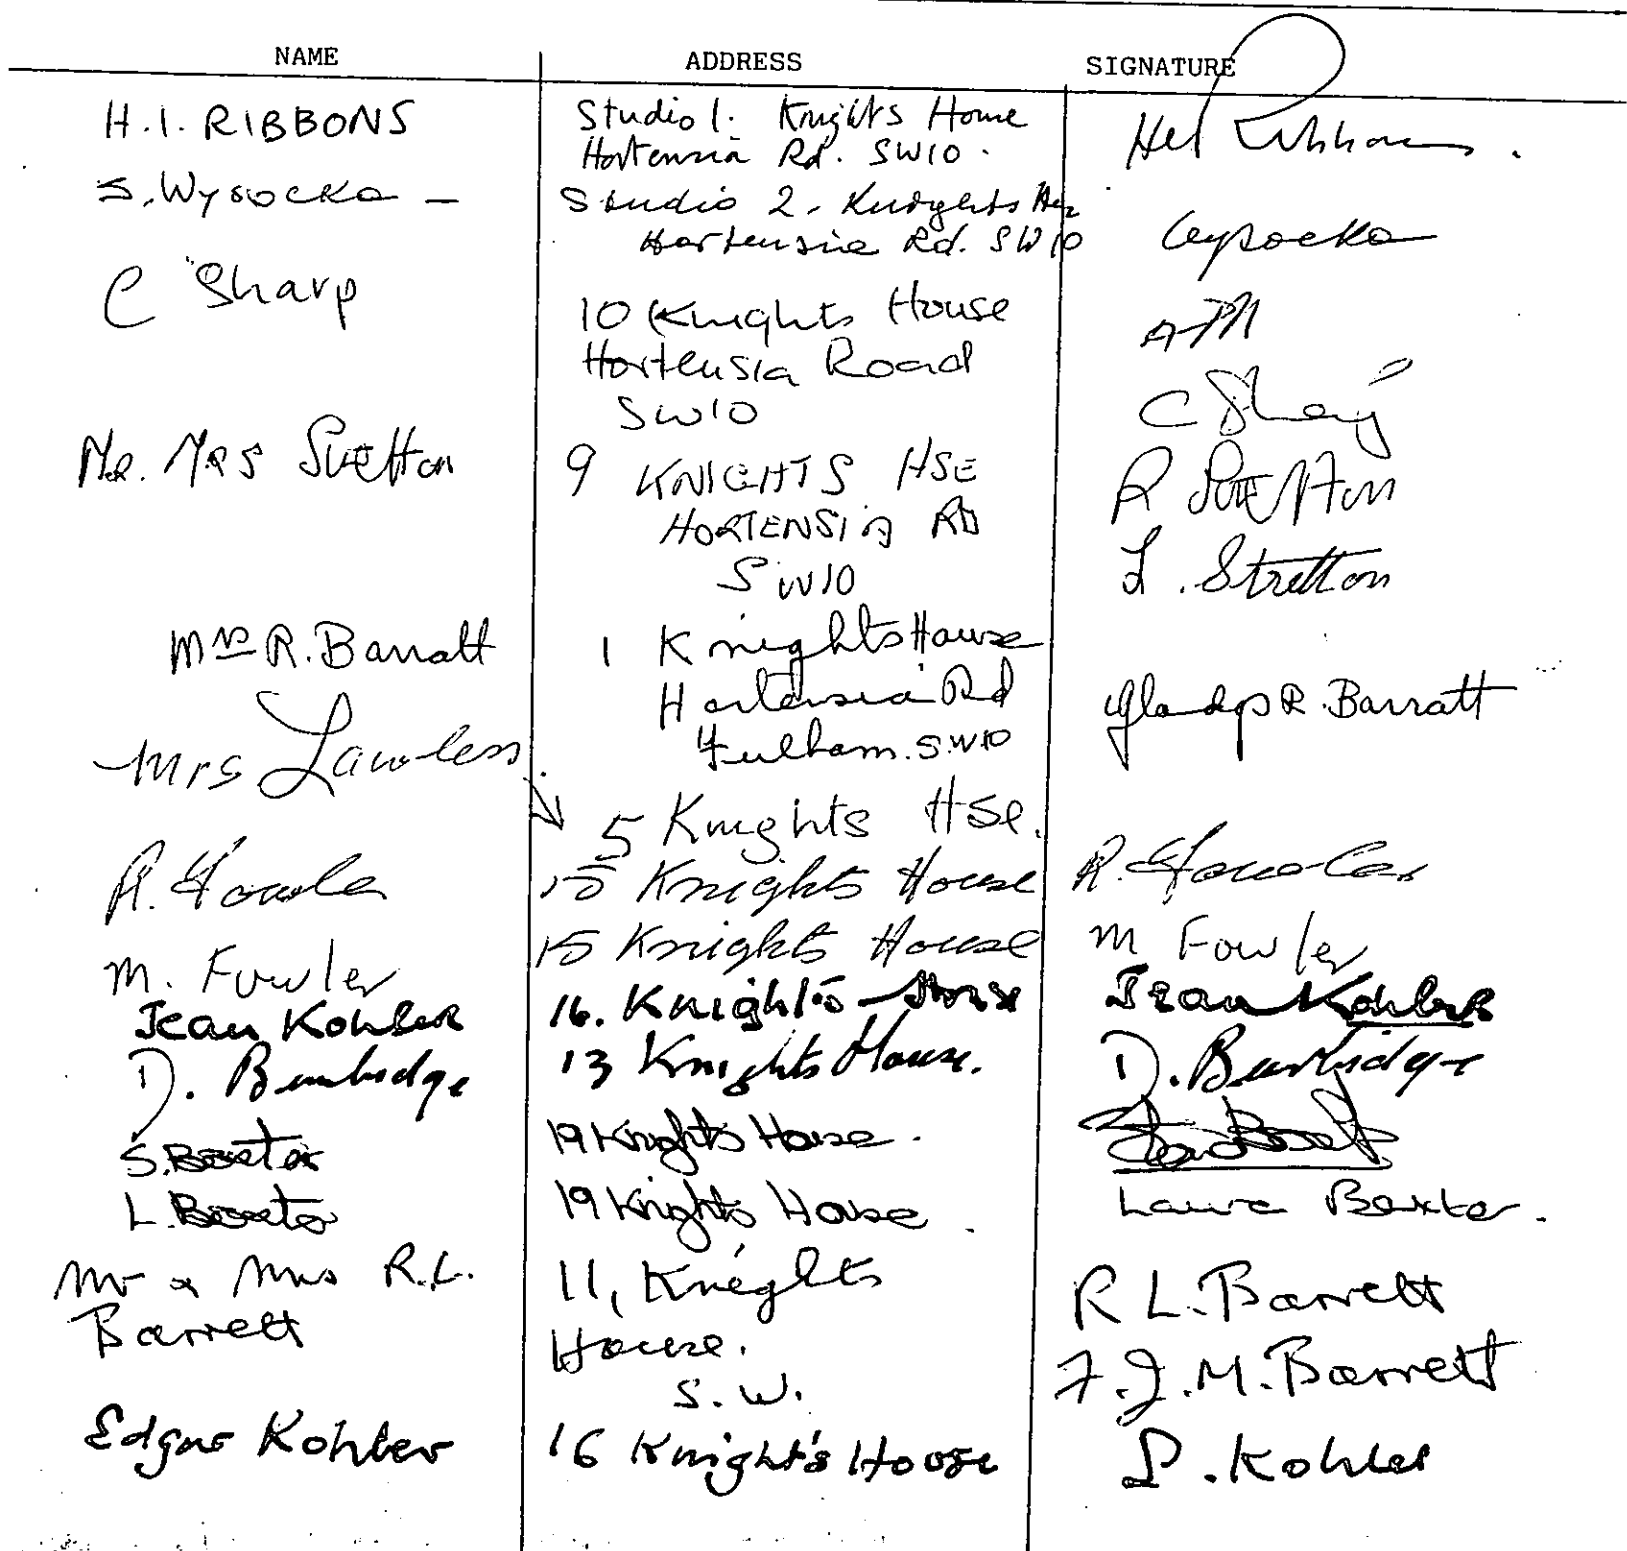 NAME ADDRESS SIGNATURE
H.I. RIBBONS Studio 1. Knights House
Hortensia Rd. SW10.
S. Wysocka - Studio 2. Knights Hse
Hortensia Rd. SW10 Wysocka
C Sharp
10 Knights House
Hortensia Road
SW10 C Sharp
Mr. Mrs Stretton 9 KNIGHTS HSE R Stretton
HORTENSIA RD
SW10 L. Stretton
Mrs R. Barratt 1 Knights House
Hortensia Rd Gladys R. Barratt
Fulham. S.W.10
Mrs Lawless
5 Knights Hse.
R. Fowler 15 Knights House R. Fowler
M. Fowler 15 Knights House M Fowler
Jean Kohler 16. Knight's House Jean Kohler
D. Burbidge 13 Knights House. D. Burbidge
S. Baxter 19 Knights House.
L. Baxter 19 Knights House. Laura Baxter.
Mr & Mrs R.L. 11, Knights R L. Barrett
Barrett House.
S.W. F.J.M. Barrett
Edgar Kohler 16 Knight's House E. Kohler